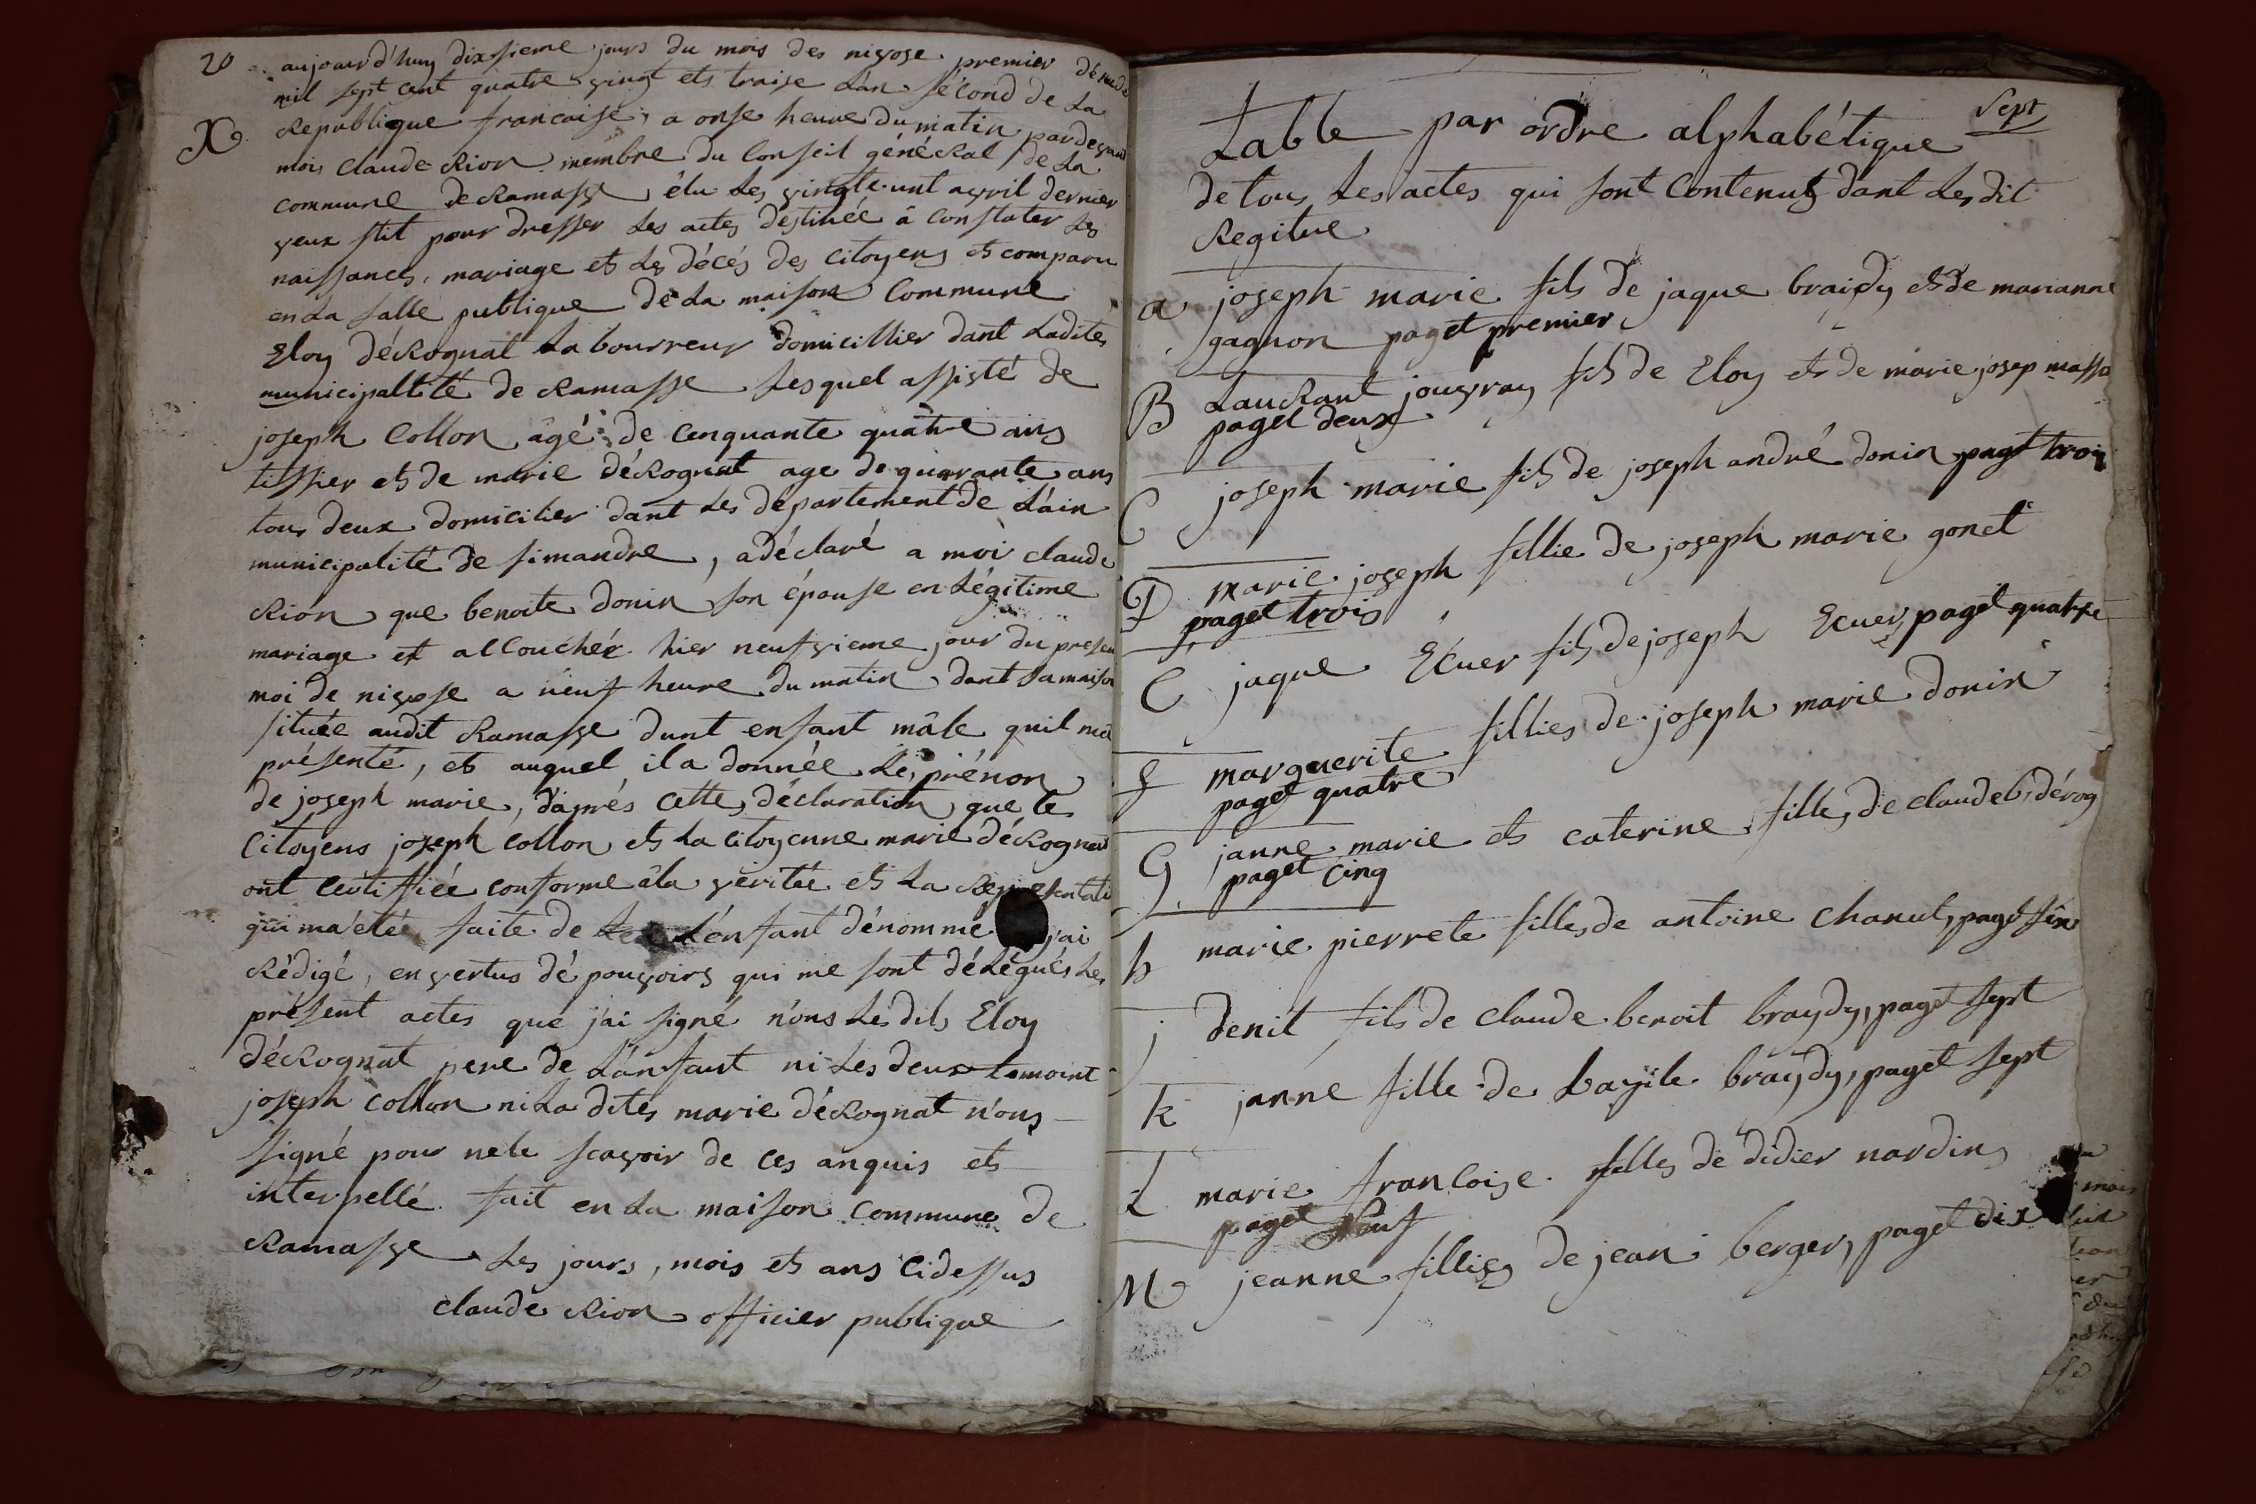 20 aujourd'huy dixsieme jours du mois des nivose premier
mil sept cent quatre vingt ets traise Lan sécond de La
X Republique francaise, a onse heure du matin pardevant
moi Claude Rion membre du Conseil généRal de La
commune de Ramasse, élu Les vingte unt avril dernier
pour dresser Les actes destinée â Constater Les
naissances, mariage ets Les décés des Citoyens ets comparu
en La salle publique de La maison Commune
Eloy déRognat Labourreur domicillier dant Ladites
municipallité de Ramasse Lesquel assisté de
joseph Collon âgé de cenquante quatre ans
tissier ets de marie déRognat age de quarante ans
tous deux domicilier dant Les département de Láin
municipalité de simandre, a déclaré a moi claude
Rion que benoite donin son épouse en Légitime
mariage et allouchée hier neufvieme jour du presen
moi de nivose a neuf heure du matin dant Sa maison
située audit Ramasse dunt enfant mâle quil ma
présenté, ets auquel il a donnée Le prénon
de joseph marie, d'aprés cette déclaration que le
Citoyens joseph collon ets La citoyenne marie déRognat
ont certifiée conforme âla véritée ets La
qui ma étée faite de Lénfant dénommé j'ai
Rédigé, en vertus dé pouvoirs qui me sont délégués Les
présent actes que j'ai signé nóns Les dits Eloy
déRognat pere de Lánfant ni Les deux temoint
joseph collon ni La dites marie déRognat nóns
signé pour nele sçavoir de ces anquis ets
interpellé fait en La maison commune de
Ramasse Les jours, mois ets ans Cidessus
claude Rion officier publique
Sept
Table par ordre alphabétique
de tous Les actes qui sont Contenuts dant Les dit
Registre
a joseph marie fils de jaque braidy ets de marianne
gagnon paget premier
B LauRant jouvray fils de Eloy ets de marie josep
paget deux
C joseph marie fils de joseph andré donin paget trois
D marie joseph fillie de joseph marie gonet
paget trois
E jaque Ecuer fils de joseph Ecuer, paget quatre
f marguerite fillies de joseph marie donin
paget quatre
G janne marie ets caterine filles de claude b. dérog
paget Cinq
h marie pierrete filles de antoine Chanut, paget
j denit fils de Claude benoit braydy, paget sept
k janne fille de bazile braydy, paget sept
L marie francoise filles de didier nardin
paget Neuf
M jeanne fillies de jean berger, paget dix